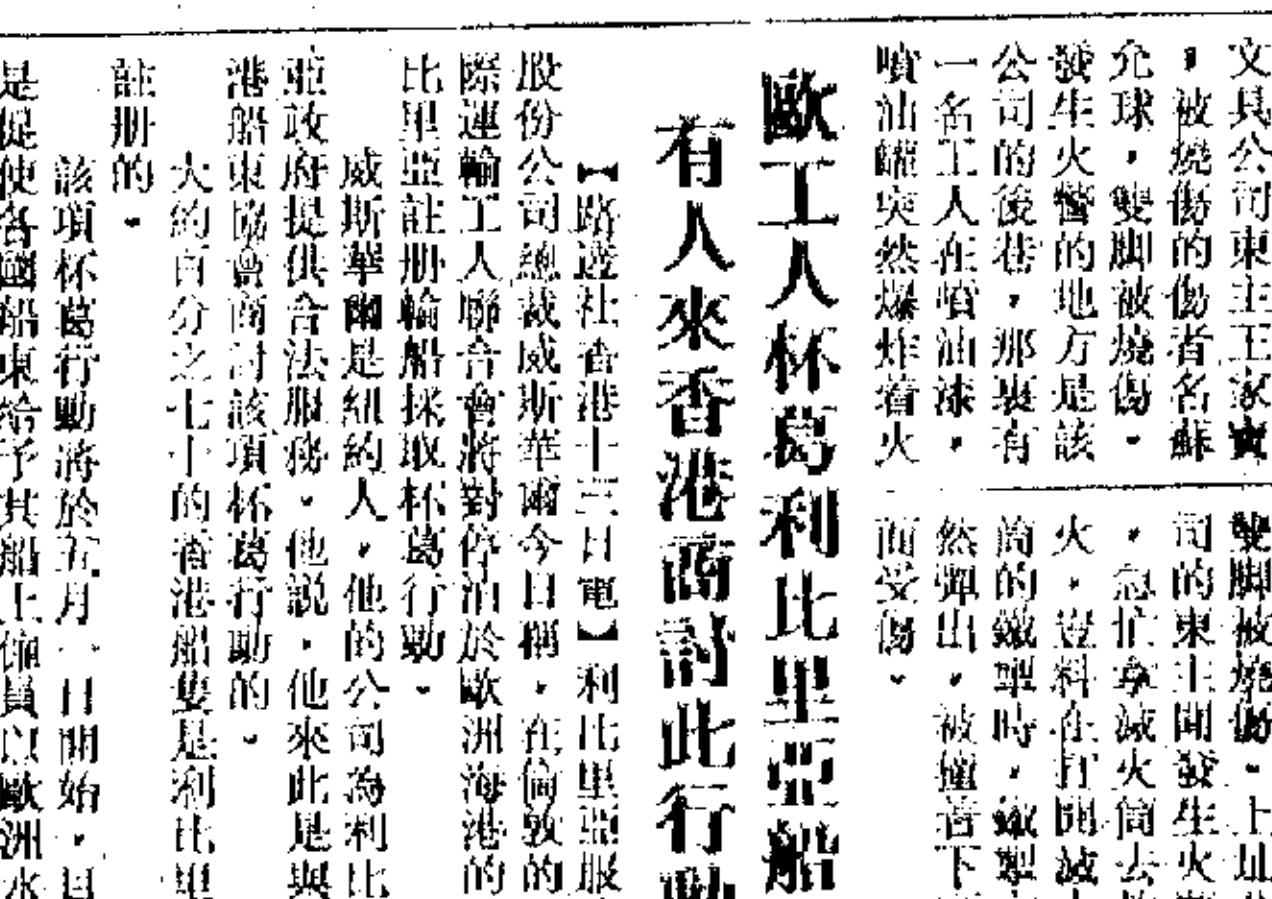 文具公司東主王家寶
，被燒傷的傷者名蘇
允球，雙脚被燒傷。
發生火警的地方是該
公司的後巷，那裏有
一名工人在噴油漆，
噴油罐突然爆炸着火
雙脚被燒傷。上址
司的東主聞發生火
，急忙拿滅火筒去
火，豈料在打開滅
筒的鐵罩時，鐵罩
然彈出，被撞着下
面受傷。
歐工人杯葛利比里亞船
有人來香港商討此行動
【路透社香港十三日電】利比里亞服
股份公司總裁威斯華爾今日稱，在倫敦的
際運輸工人聯合會將對停泊於歐洲海港的
比里亞註册輪船採取杯葛行動。
威斯華爾是紐約人，他的公司為利比
亞政府提供合法服務。他說，他來此是與
港船東協會商討該項杯葛行動的。
大約百分之七十的香港船隻是利比里
註册的。
該項杯葛行動將於五月一日開始，目
是促使各國船東給予其船上僱員以歐洲水